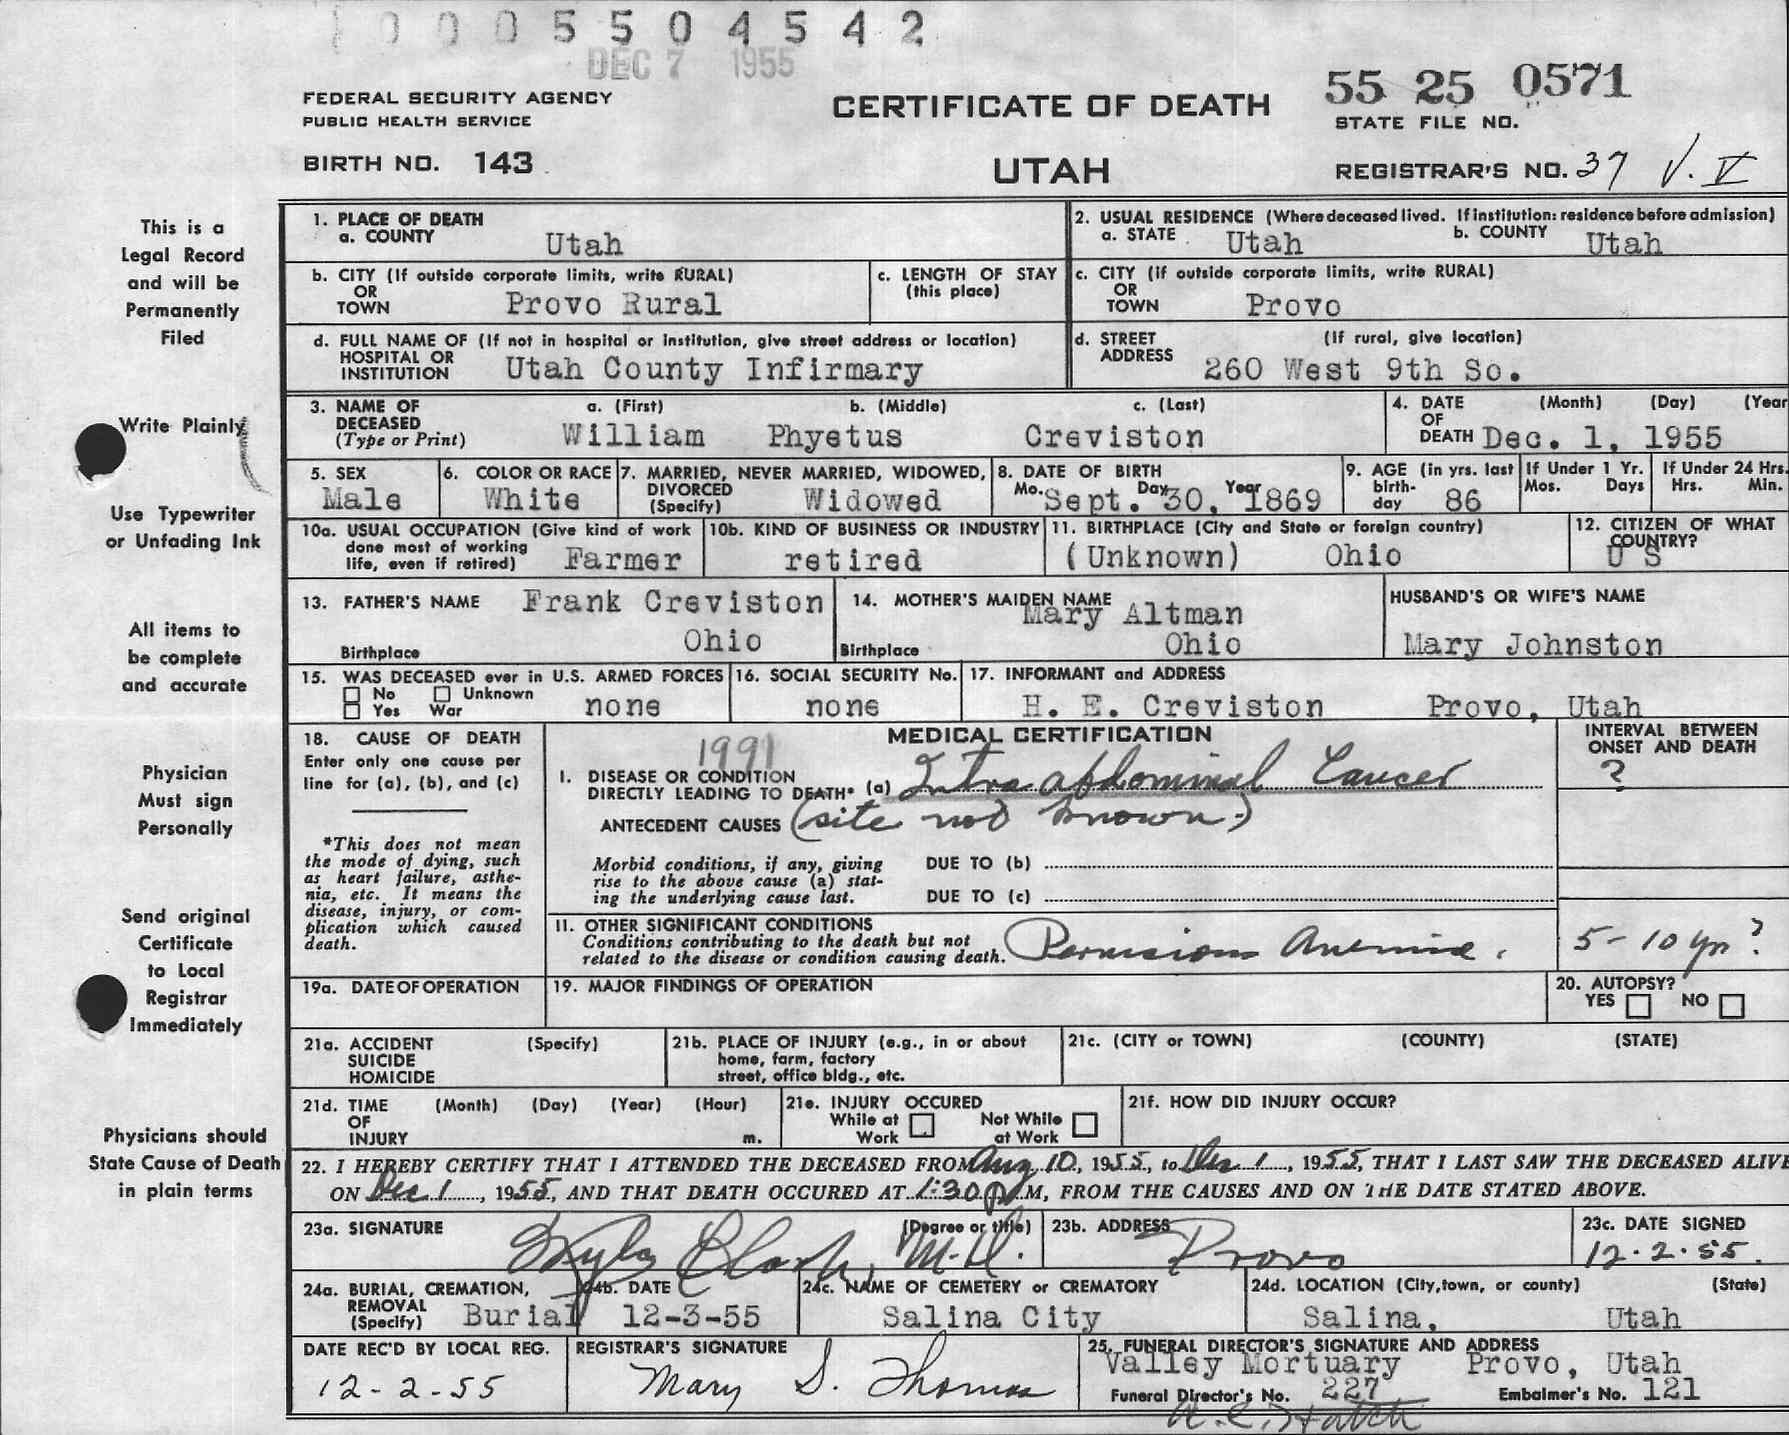 1 0 0 0 5 5 0 4 5 4 2
DEC 7 1955
FEDERAL SECURITY AGENCY
PUBLIC HEALTH SERVICE
BIRTH NO. 143
CERTIFICATE OF DEATH
UTAH
55 25 0571
STATE FILE NO.
REGISTRAR'S NO. 37 V. V
This is a
Legal Record
and will be
Permanently
Filed
Write Plainly
Use Typewriter
or Unfading Ink
All items to
be complete
and accurate
Physician
Must sign
Personally
Send original
Certificate
to Local
Registrar
Immediately
Physicians should
State Cause of Death
in plain terms
1. PLACE OF DEATH
a. COUNTY Utah
2. USUAL RESIDENCE (Where deceased lived. If institution: residence before admission)
a. STATE Utah b. COUNTY Utah
b. CITY (If outside corporate limits, write RURAL)
OR
TOWN Provo Rural
c. LENGTH OF STAY
(this place)
c. CITY (If outside corporate limits, write RURAL)
OR
TOWN Provo
d. FULL NAME OF (If not in hospital or institution, give street address or location)
HOSPITAL OR
INSTITUTION Utah County Infirmary
d. STREET (If rural, give location)
ADDRESS 260 West 9th So.
3. NAME OF a. (First) b. (Middle) c. (Last)
DECEASED
(Type or Print) William Phyetus Creviston
4. DATE (Month) (Day) (Year
OF
DEATH Dec. 1, 1955
5. SEX
Male
6. COLOR OR RACE
White
7. MARRIED, NEVER MARRIED, WIDOWED,
DIVORCED
(Specify) Widowed
8. DATE OF BIRTH
Mo. Day Year
Sept. 30, 1869
9. AGE (in yrs. last
birth-
day 86
If Under 1 Yr.
Mos. Days
If Under 24 Hrs.
Hrs. Min.
10a. USUAL OCCUPATION (Give kind of work
done most of working
life, even if retired) Farmer
10b. KIND OF BUSINESS OR INDUSTRY
retired
11. BIRTHPLACE (City and State or foreign country)
(Unknown) Ohio
12. CITIZEN OF WHAT
COUNTRY?
U S
13. FATHER'S NAME Frank Creviston
Birthplace Ohio
14. MOTHER'S MAIDEN NAME
Mary Altman
Birthplace Ohio
HUSBAND'S OR WIFE'S NAME
Mary Johnston
15. WAS DECEASED ever in U.S. ARMED FORCES
No Unknown
Yes War none
16. SOCIAL SECURITY No.
none
17. INFORMANT and ADDRESS
H. E. Creviston Provo, Utah
18. CAUSE OF DEATH
Enter only one cause per
line for (a), (b), and (c)
*This does not mean
the mode of dying, such
as heart failure, asthe-
nia, etc. It means the
disease, injury, or com-
plication which caused
death.
MEDICAL CERTIFICATION
1991
I. DISEASE OR CONDITION
DIRECTLY LEADING TO DEATH* (a) Intra abdominal Cancer
ANTECEDENT CAUSES (site not known.)
Morbid conditions, if any, giving DUE TO (b)
rise to the above cause (a) stat-
ing the underlying cause last. DUE TO (c)
INTERVAL BETWEEN
ONSET AND DEATH
?
II. OTHER SIGNIFICANT CONDITIONS
Conditions contributing to the death but not
related to the disease or condition causing death. Pernicious Anemia.
5-10 yr?
19a. DATE OF OPERATION
19. MAJOR FINDINGS OF OPERATION
20. AUTOPSY?
YES NO
21a. ACCIDENT (Specify)
SUICIDE
HOMICIDE
21b. PLACE OF INJURY (e.g., in or about
home, farm, factory
street, office bldg., etc.
21c. (CITY or TOWN) (COUNTY) (STATE)
21d. TIME (Month) (Day) (Year) (Hour)
OF
INJURY m.
21e. INJURY OCCURED
While at Not While
Work at Work
21f. HOW DID INJURY OCCUR?
22. I HEREBY CERTIFY THAT I ATTENDED THE DECEASED FROM Aug 10, 1955, to Dec 1, 1955, THAT I LAST SAW THE DECEASED ALIVE
ON Dec 1, 1955, AND THAT DEATH OCCURED AT 1:30 P.M, FROM THE CAUSES AND ON THE DATE STATED ABOVE.
23a. SIGNATURE (Degree or title)
Clark, M.D.
23b. ADDRESS
Provo
23c. DATE SIGNED
12-2-55.
24a. BURIAL, CREMATION,
REMOVAL
(Specify) Burial
24b. DATE
12-3-55
24c. NAME OF CEMETERY or CREMATORY
Salina City
24d. LOCATION (City, town, or county) (State)
Salina, Utah
DATE REC'D BY LOCAL REG.
12-2-55
REGISTRAR'S SIGNATURE
Mary S. Thomas
25. FUNERAL DIRECTOR'S SIGNATURE AND ADDRESS
Valley Mortuary Provo, Utah
Funeral Director's No. 227 Embalmer's No. 121
A. E. Hatch